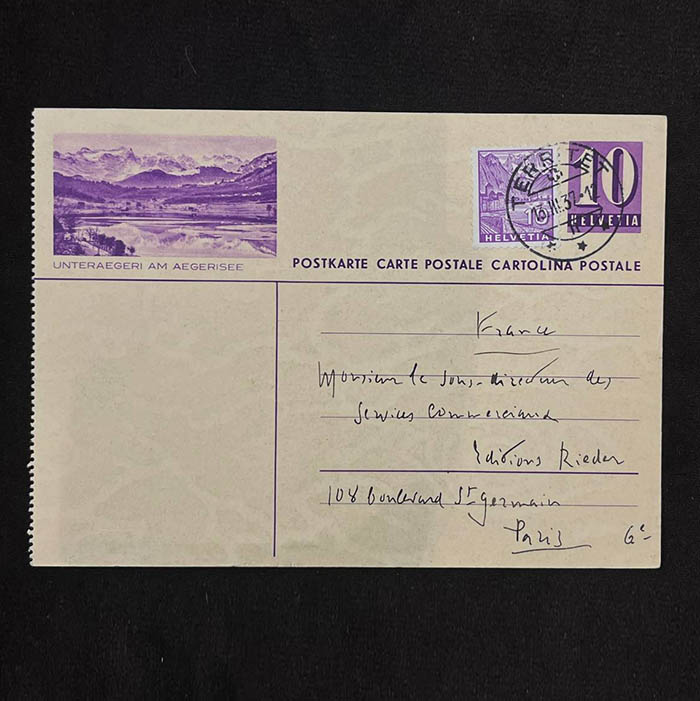 UNTERAEGERI AM AEGERISEE
10
HELVETIA
10
HELVETIA
TERRITET
13.III.37
POSTKARTE CARTE POSTALE CARTOLINA POSTALE
France
Monsieur le sous-directeur des
Services Commerciaux
Editions Rieder
108 boulevard St Germain
Paris 6e